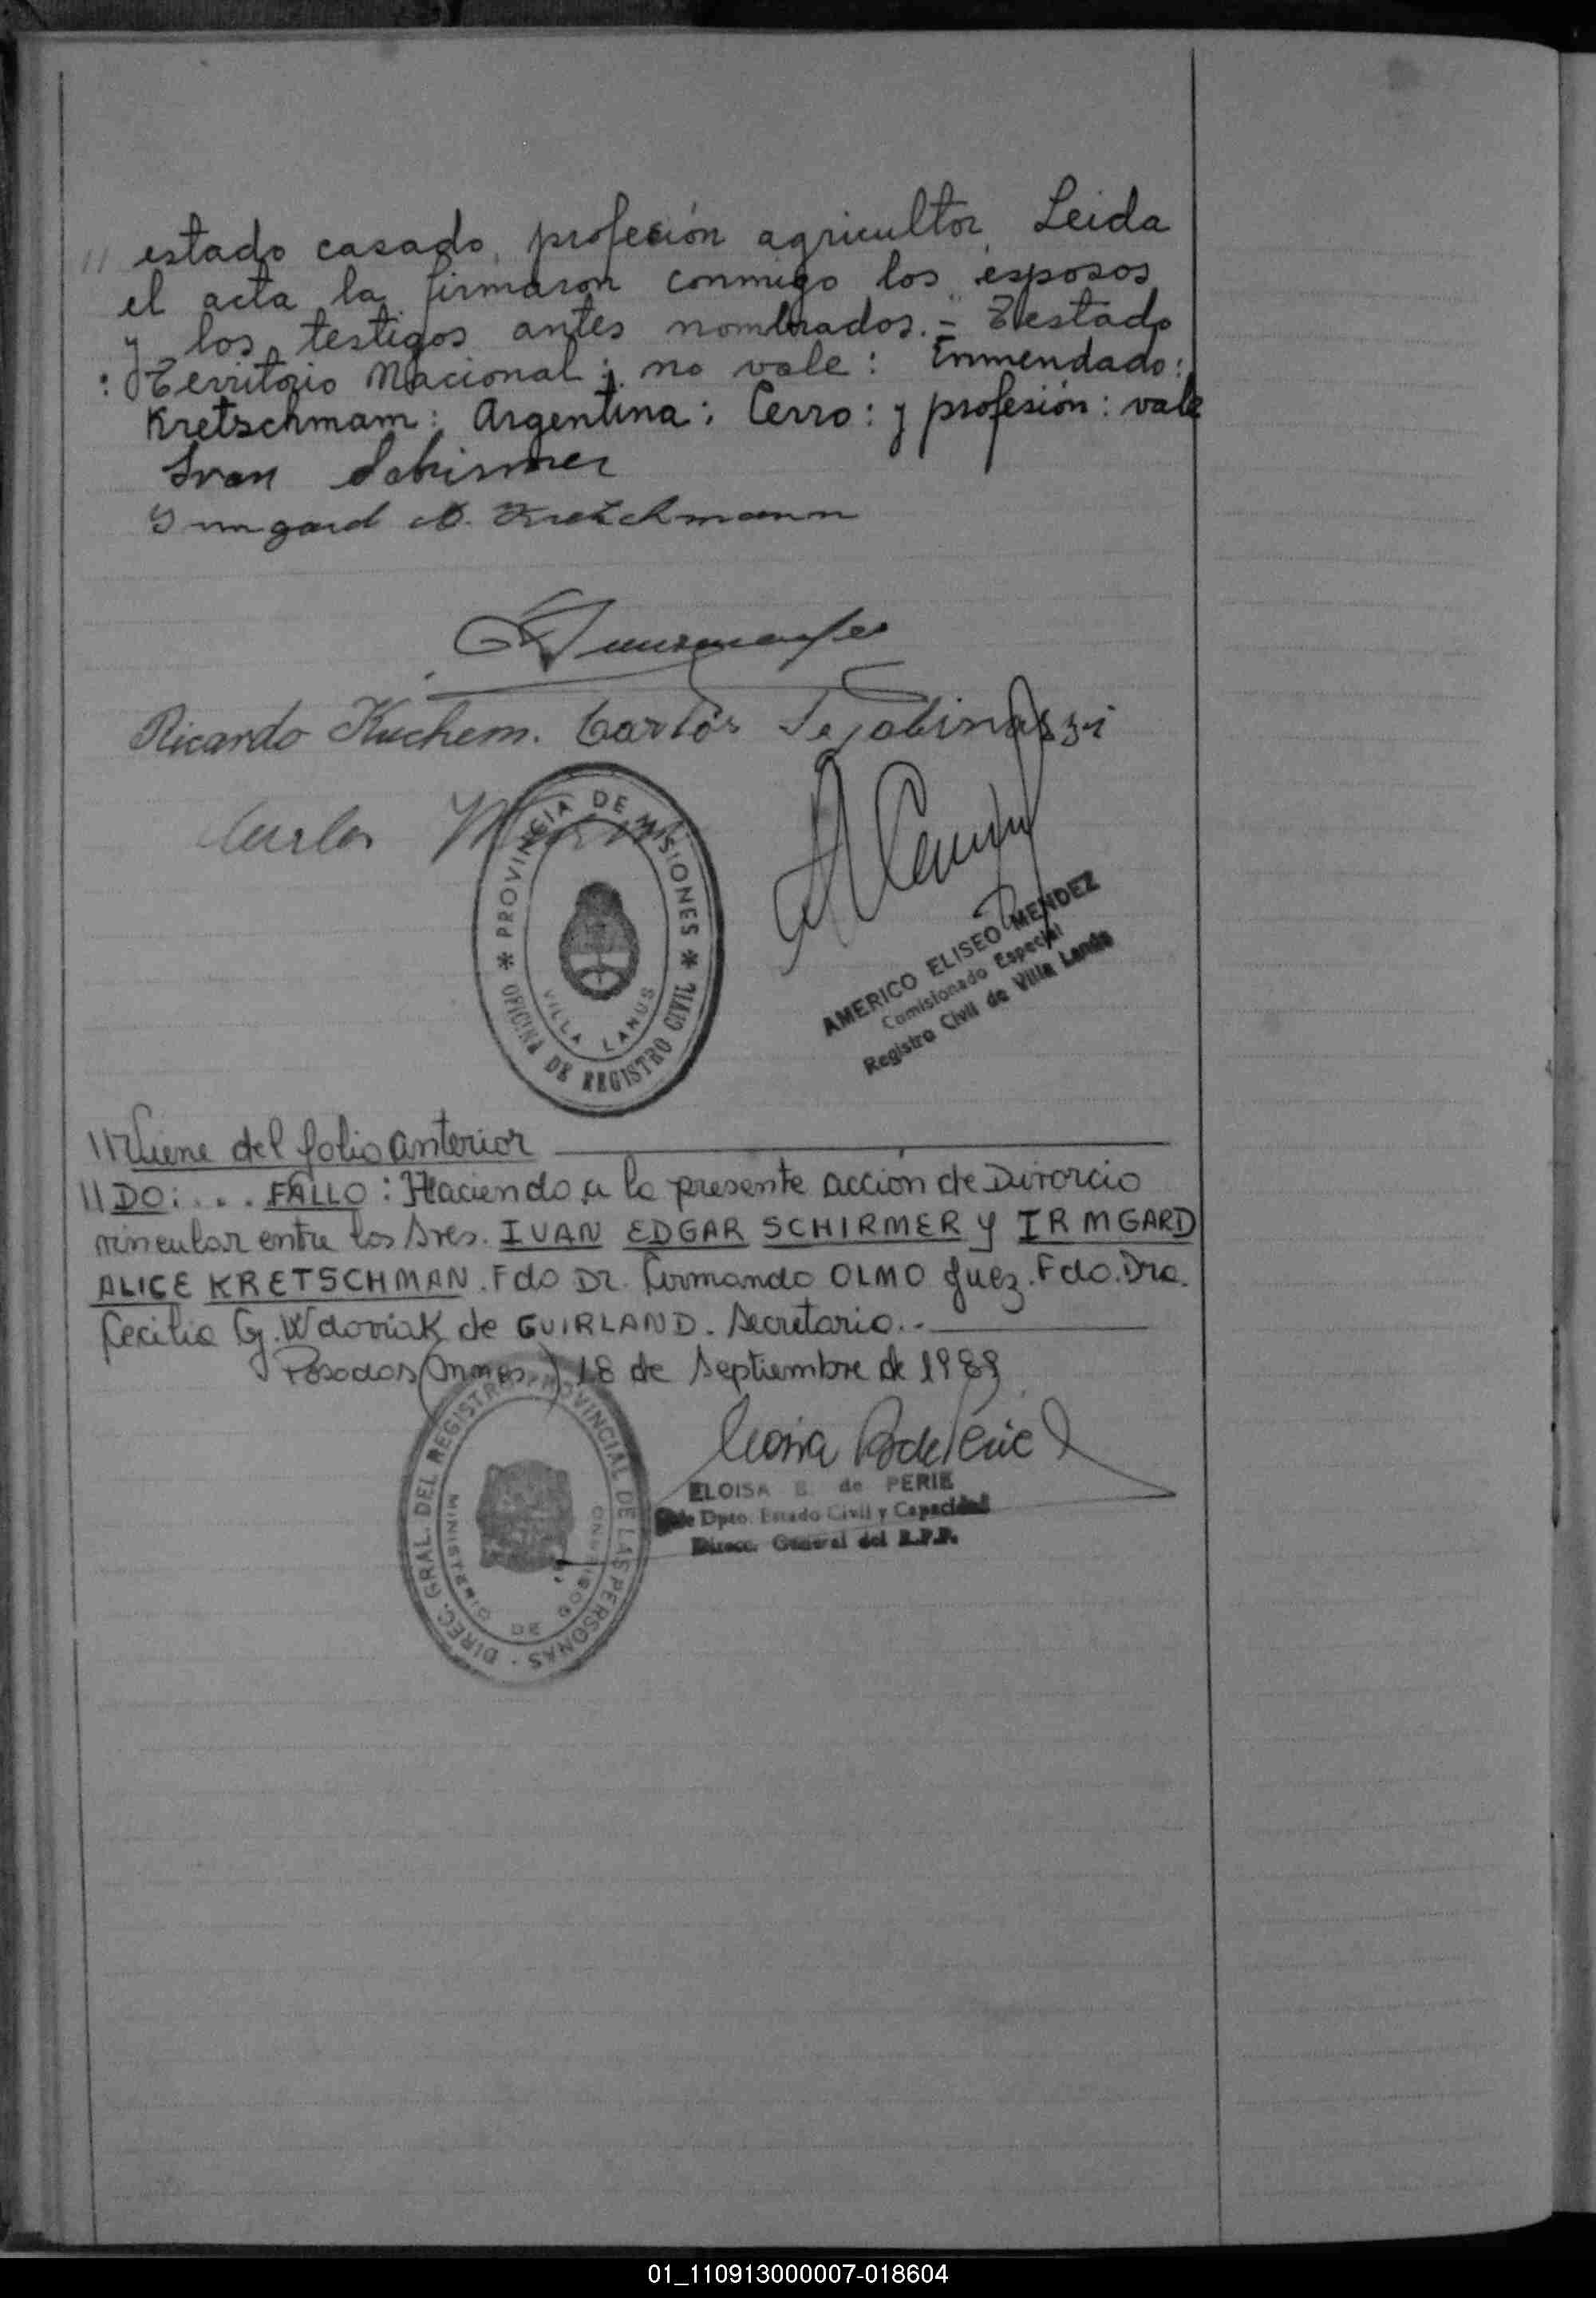 // estado casado, profesión agricultor, Leida
el acta la firmaron conmigo los esposos
y los testigos antes nombrados.= Testado
: Territorio Nacional: no vale: Enmendado:
Kretschmam: Argentina: Cerro: y profesión: vale
Ivan Schirmer
Irmgard A. Kretschmann
Ricardo Kuchem. Carlos
Carlos
* PROVINCIA DE MISIONES *
OFICINA DE REGISTRO CIVIL
VILLA LANUS
AMERICO ELISEO MENDEZ
Comisionado Especial
Registro Civil de Villa Lanús
//Viene del folio anterior
//DO:... FALLO: Haciendo a la presente acción de Divorcio
vincular entre los Sres. IVAN EDGAR SCHIRMER y IRMGARD
ALICE KRETSCHMAN. Fdo Dr. Armando OLMO Juez. Fdo. Dra.
Cecilia G. Wdoviak de GUIRLAND. Secretaria.-
Posadas (Mnes.) 18 de Septiembre de 1989
DIREC. GRAL. DEL REGISTRO PROVINCIAL DE LAS PERSONAS
MINISTERIO DE GOBIERNO
ELOISA B. de PERIE
Dpto. Estado Civil y Capacidad
Direcc. General del R.P.P.
01_110913000007-018604